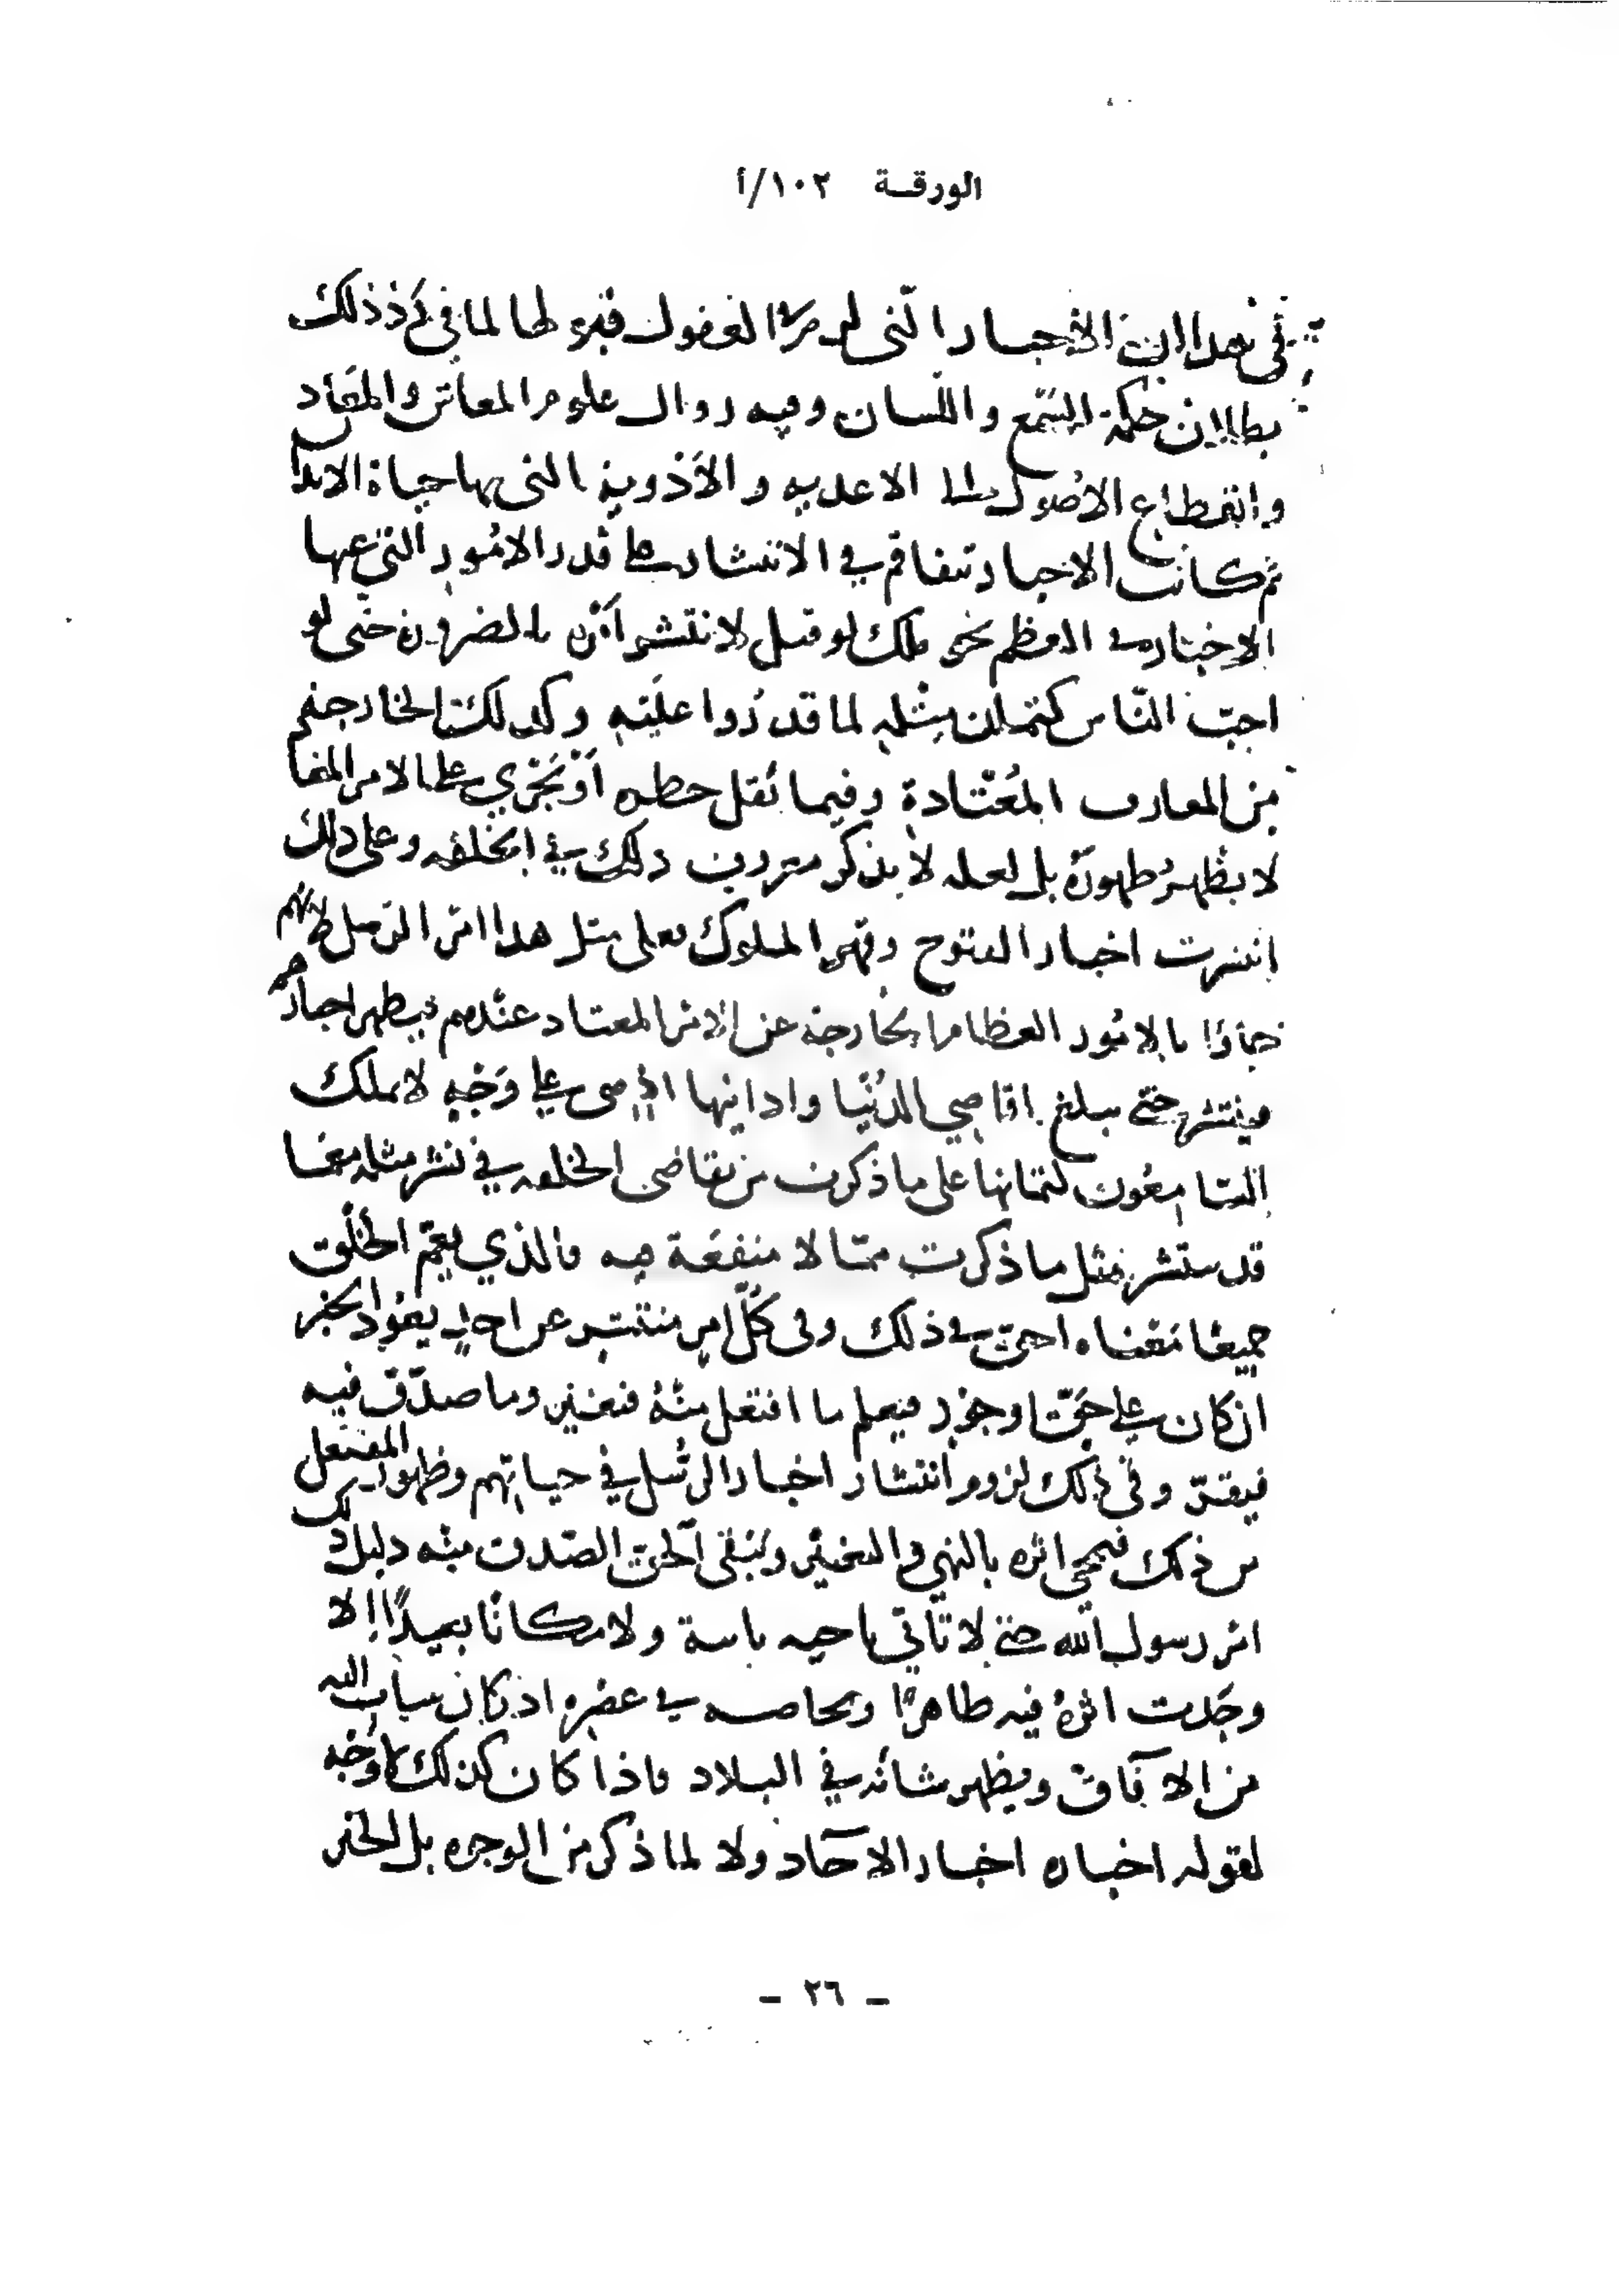 الورقة ١٠٢/أ
في هذا ان الأخبار التي لزم العقول قبولها لما في رد ذلك
بطلان حكمة السمع واللسان وفيه زوال علوم المعاش والمعاد
وانقطاع الأصول الاغذية والأدوية التي بها حياة الابدان
ثم كانت الاخبار تتفاقم في الانتشار على قدر الامور التي عنها
الاخبار في العظم نحو ملك لو قتل لانتشر أمره بالضرورة حتى لو
احبّ النّاس كتمان مثله لما قدروا عليه وكذلك الخارجة
من المعارف المُعْتادة وفيما نقل خطره أو يجري على الامر المعتاد
لا يظهر ظهوره بل لعله لا يذكر ذلك في الخلقه وعلى ذلك
انتشرت اخبار الفتوح وقهر الملوك فعلى مثل هذا امر الرسل لأنهم
جاؤا بالامور العظام الخارجة عن الامر المعتاد عندهم فيظهر اخبارهم
وينتشر حتى يبلغ اقاصي الدُنيا وادانيها على وَجهٍ لا يملك
السّامعون كتمانها على ما ذكرت من تقاضي الخلقه في نشر مثله مما
قد ينتشر مثل ما ذكرت ممّا لا منفعَة فيه فالذي يعمّ الخلق
جميعًا مَعْناه احق في ذلك وفى كلّ امر ينتشر عن احدٍ يعود الخبر
ان كان على حَقّ او جور فيعلم ما افتعل منهُ فيغير وما صدّق فيه
فيقرّ وفي ذلك لزوم انتشار اخبار الرُسل في حياتهم وظهور المفتعل
من ذلك فيمحي اثره بالنهي والتغيير ويَبْقى الحق الصدق منه دليل ذلك
امر رسول الله حتى لا تأتي ناحيه نائية ولا مكانًا بعيدًا إلا
وجَدت اثرهُ فيه ظاهرًا وبخاصه في عصره اذ كان
من الآفاق ويظهر شأنه في البلاد فاذا كان كذلك لا وجه
لقوله اخباره اخبار الآحاد ولا لما ذكر من الوجوه بل الخبر
– ٢٦ –